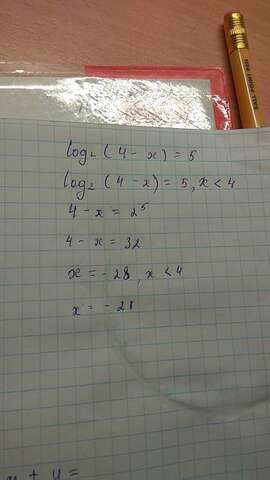 log₂(4-x)=5
log₂(4-x)=5, x<4
4-x=2⁵
4-x=32
x=-28, x<4
x=-28